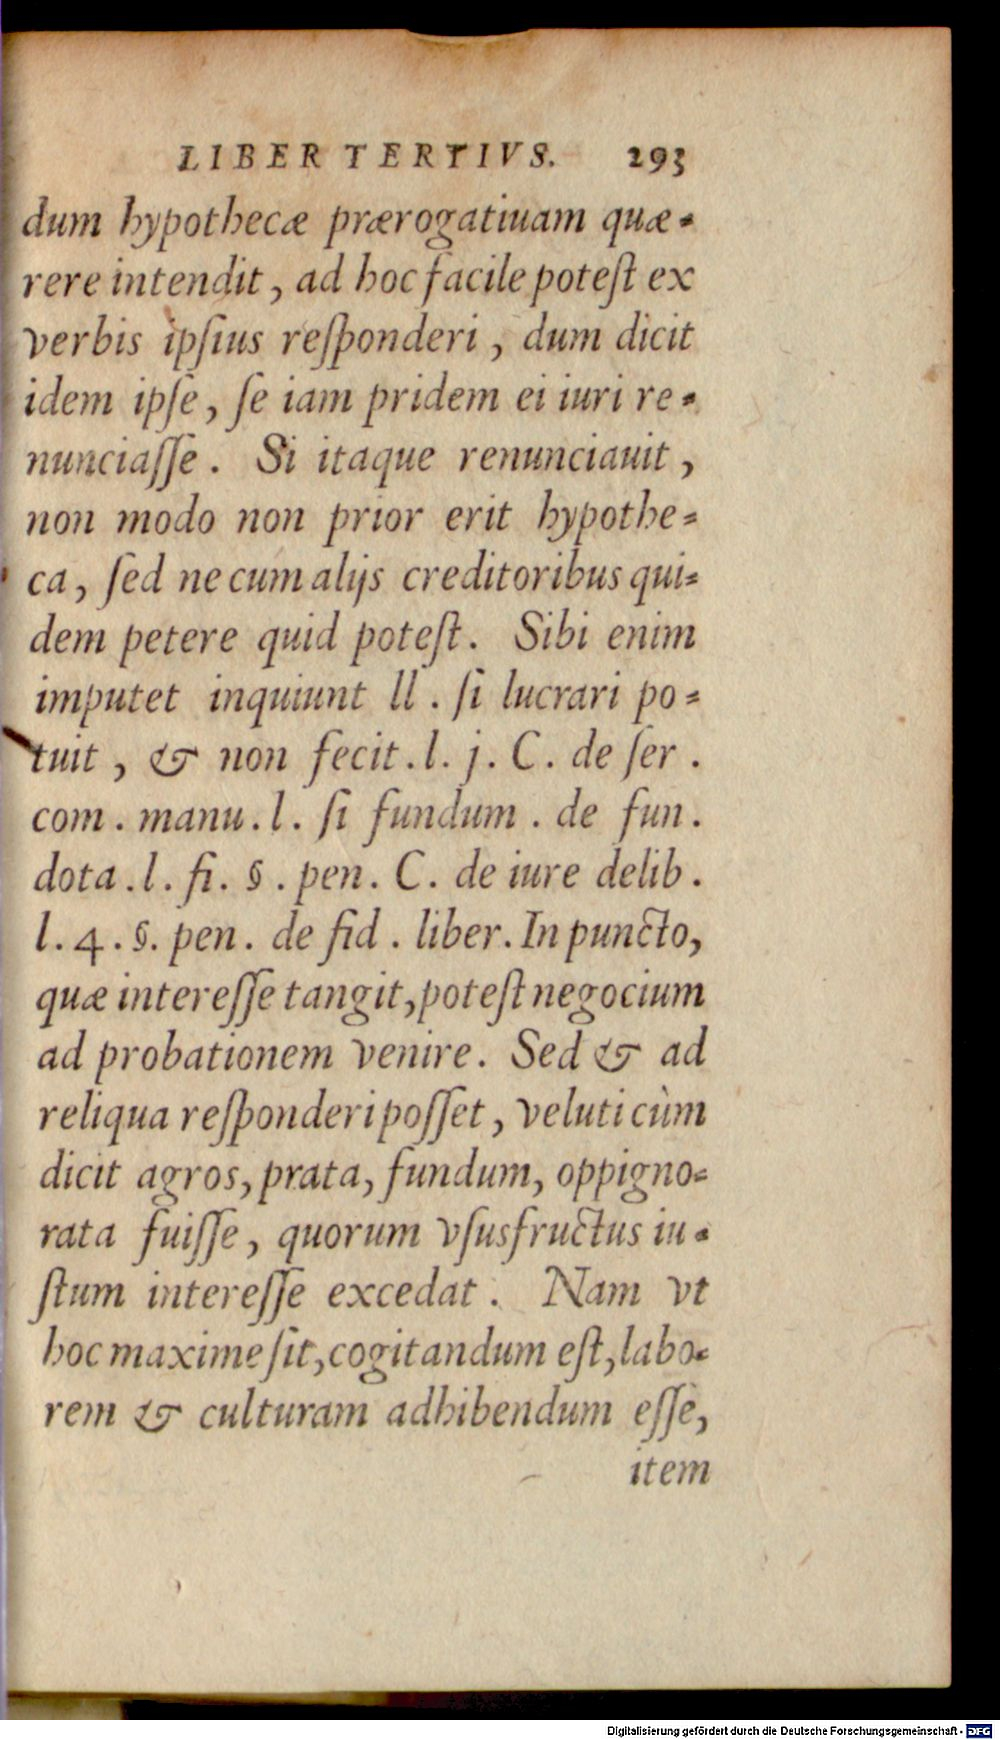 LIBER TERTIVS. 293
dum hypothecæ prærogatiuam quæ-
rere intendit, ad hoc facile poteſt ex
verbis ipſius reſponderi, dum dicit
idem ipſe, ſe iam pridem ei iuri re-
nunciaſſe. Si itaque renunciauit,
non modo non prior erit hypothe-
ca, ſed ne cum alijs creditoribus qui-
dem petere quid poteſt. Sibi enim
imputet inquiunt ll. ſi lucrari po-
tuit, & non fecit. l. j. C. de ſer.
com. manu. l. ſi fundum. de fun.
dota. l. fi. §. pen. C. de iure delib.
l. 4. §. pen. de fid. liber. In puncto,
quæ intereſſe tangit, poteſt negocium
ad probationem venire. Sed & ad
reliqua reſponderi poſſet, veluti cùm
dicit agros, prata, fundum, oppigno-
rata fuiſſe, quorum vſusfructus iu-
ſtum intereſſe excedat. Nam vt
hoc maxime ſit, cogitandum eſt, labo-
rem & culturam adhibendum eſſe,
item
Digitalisierung gefördert durch die Deutsche Forschungsgemeinschaft - DFG